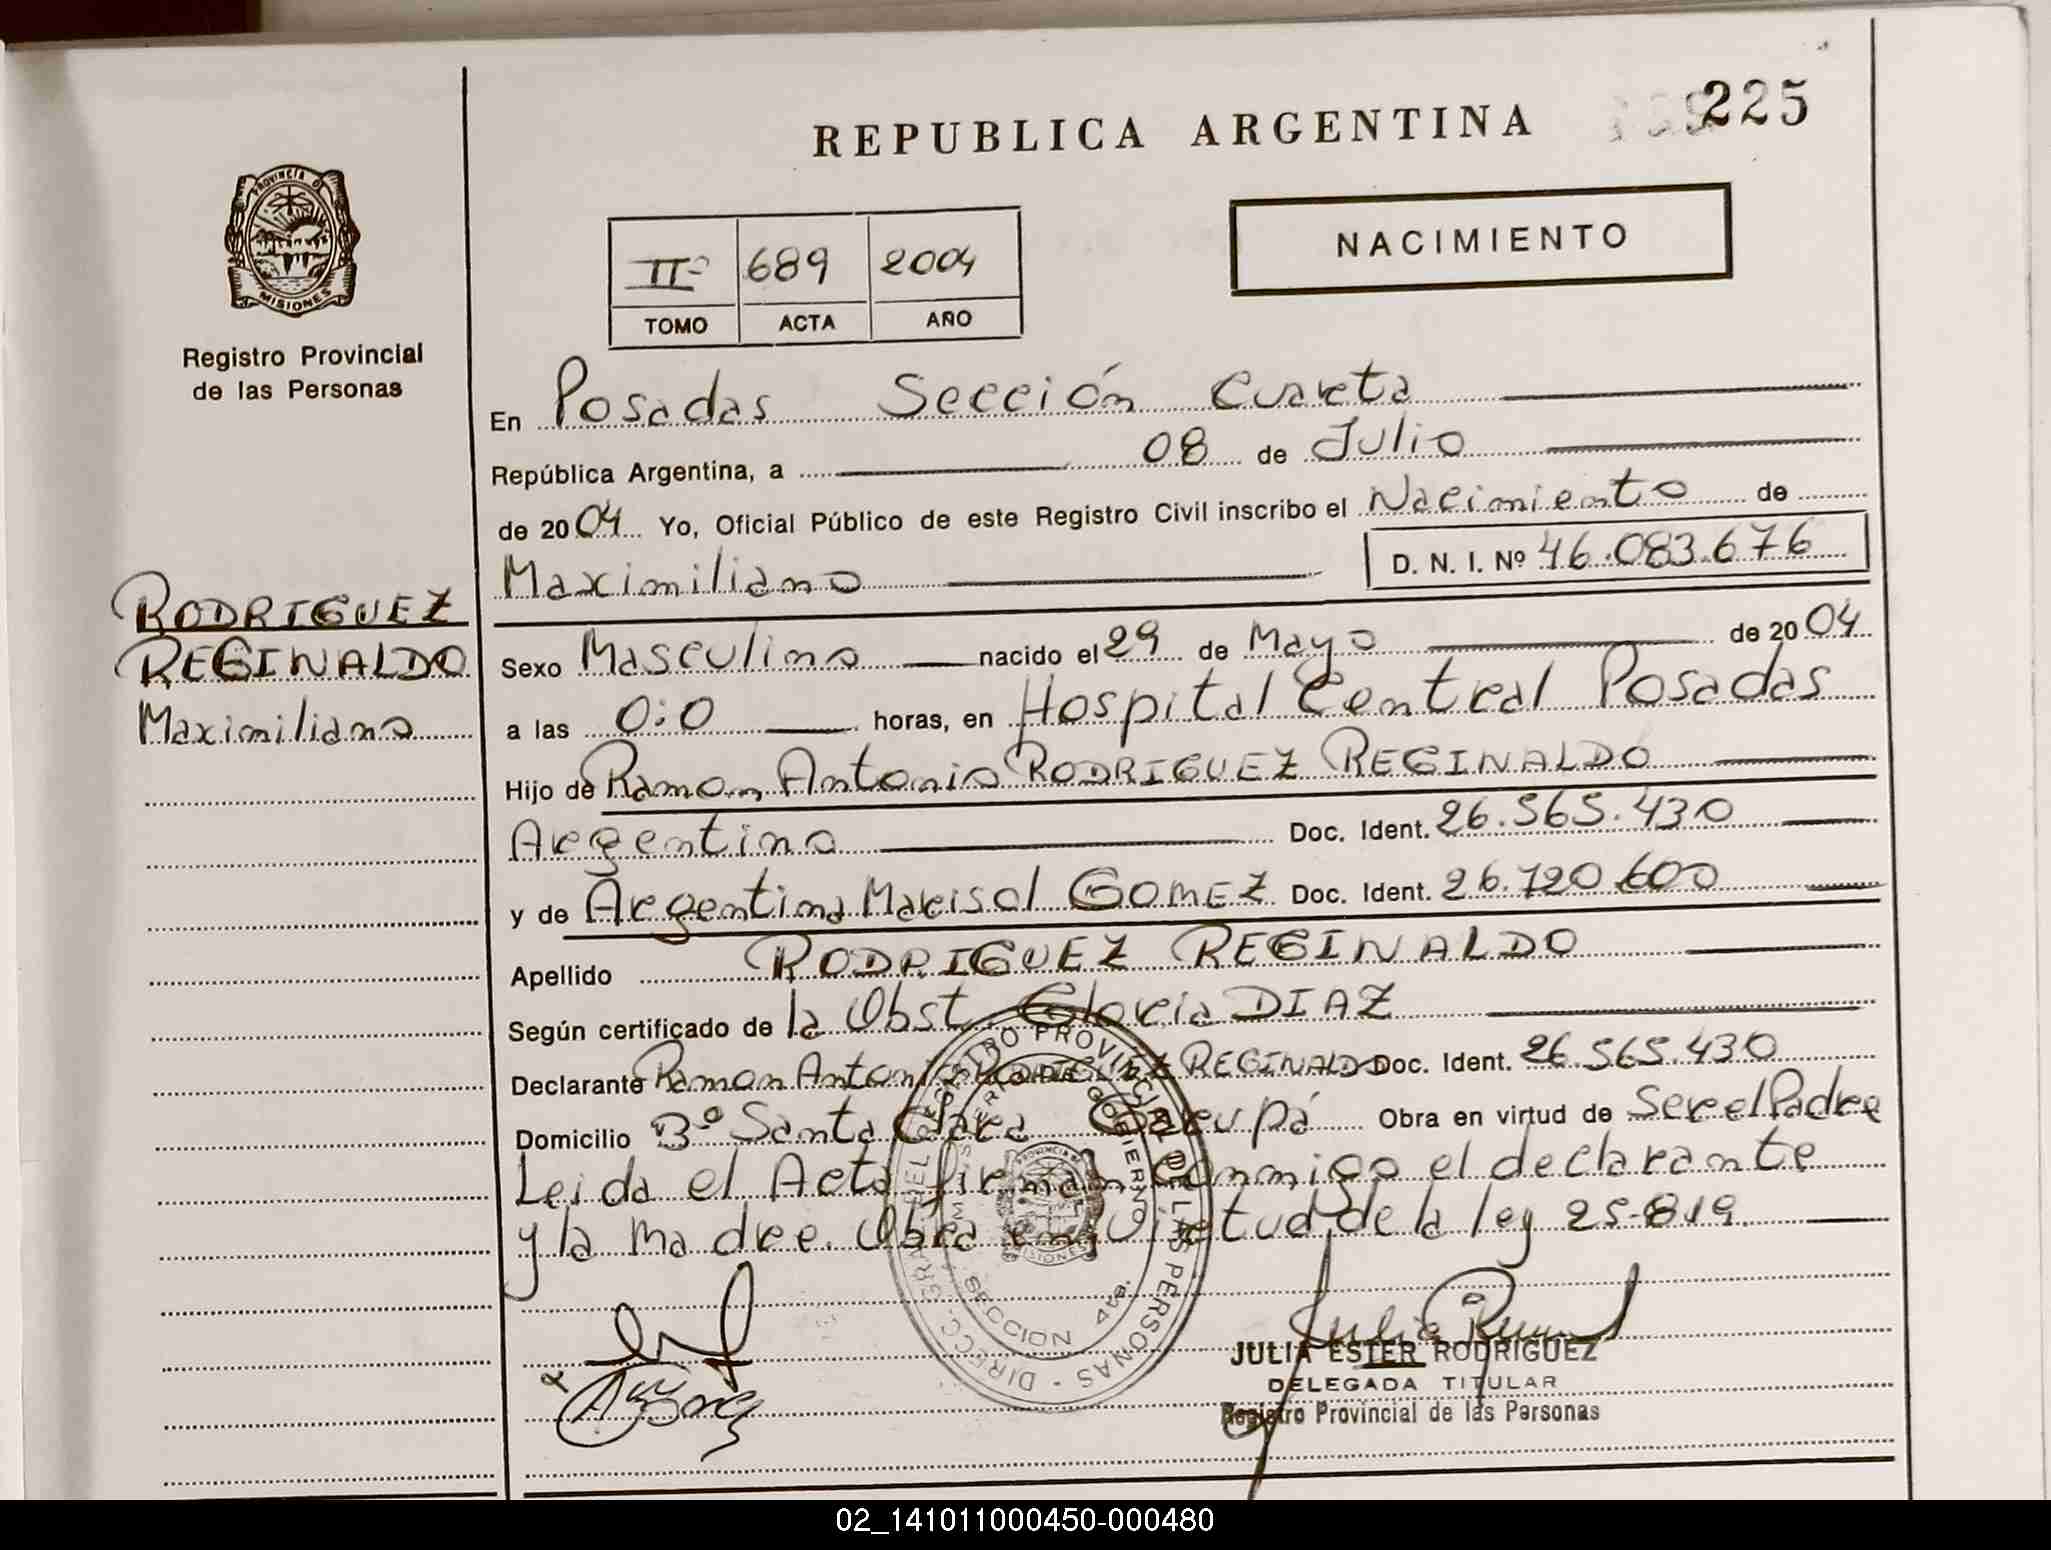 REPUBLICA ARGENTINA
225
PROVINCIA D
MISIONES
Registro Provincial
de las Personas
IIº 689 2004
TOMO ACTA AÑO
NACIMIENTO
En Posadas Sección Cuarta
República Argentina, a 08 de Julio
de 2004 Yo, Oficial Público de este Registro Civil inscribo el Nacimiento de
Maximiliano D. N. I. Nº 46.083.676
RODRIGUEZ
REGINALDO
Maximiliano
Sexo Masculino nacido el 29 de Mayo de 2004
a las 0:0 horas, en Hospital Central Posadas
Hijo de Ramon Antonio RODRIGUEZ REGINALDO
Argentino Doc. Ident. 26.565.430
y de Argentina Marisol GOMEZ Doc. Ident. 26.720.600
Apellido RODRIGUEZ REGINALDO
Según certificado de la Obst. Gloria DIAZ
Declarante Ramon Antonio RODRIGUEZ REGINALDO Doc. Ident. 26.565.430
Domicilio Bº Santa Clara Garupá Obra en virtud de Ser el Padre
Leida el Acta firman conmigo el declarante
y la madre. Obra en Virtud de la ley 25-819.
DIRECC. GRAL. DEL REGISTRO PROVINCIAL DE LAS PERSONAS
MINISTERIO DE GOBIERNO
PROVINCIA D
MISIONES
SECCION 4ta.
JULIA ESTER RODRIGUEZ
DELEGADA TITULAR
Registro Provincial de las Personas
02_141011000450-000480